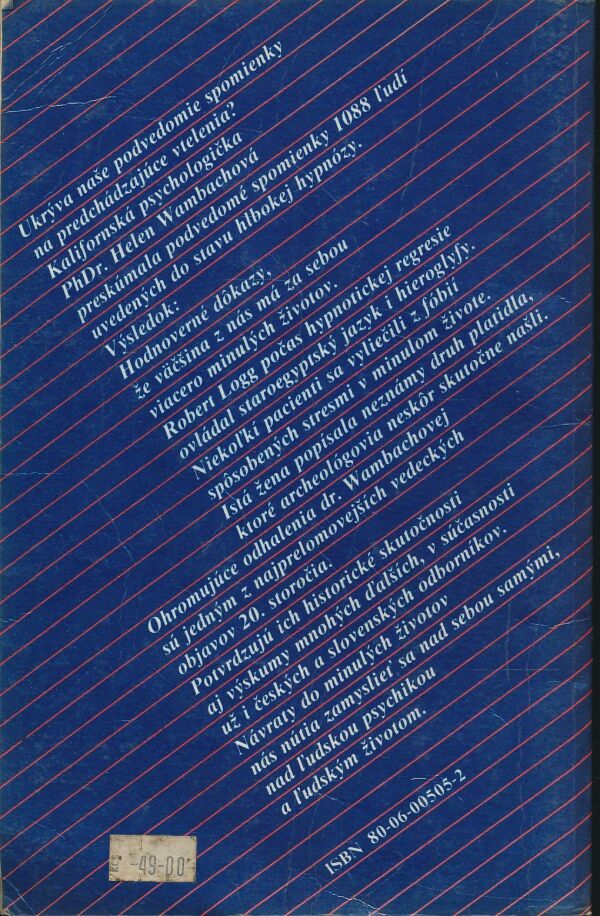 Ukrýva naše podvedomie spomienky
na predchádzajúce vtelenia?
Kalifornská psychologička
PhDr. Helen Wambachová
preskúmala podvedomé spomienky 1088 ľudí
uvedených do stavu hlbokej hypnózy.
Výsledok:
Hodnoverné dôkazy,
že väčšina z nás má za sebou
viacero minulých životov.
Robert Logg počas hypnotickej regresie
ovládal staroegyptský jazyk i hieroglyfy.
Niekoľkí pacienti sa vyliečili z fóbií
spôsobených stresmi v minulom živote.
Istá žena popísala neznámy druh platidla,
ktoré archeológovia neskôr skutočne našli.
Ohromujúce odhalenia dr. Wambachovej
sú jedným z najprelomovejších vedeckých
objavov 20. storočia.
Potvrdzujú ich historické skutočnosti
aj výskumy mnohých ďalších, v súčasnosti
už i českých a slovenských odborníkov.
Návraty do minulých životov
nás nútia zamyslieť sa nad sebou samými,
nad ľudskou psychikou
a ľudským životom.
ISBN 80-06-00505-2
Kčs -49-00